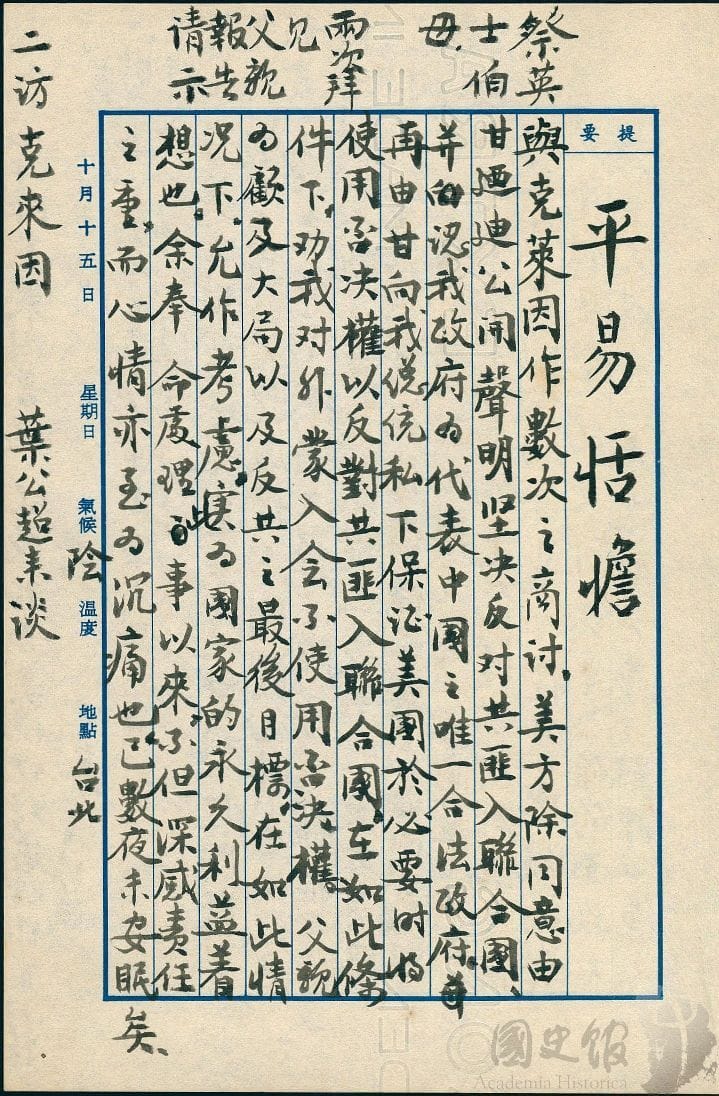 提要
平易恬澹
祭英
士伯
毋
兩次拜
見
父親
報告
请示
與克萊因作數次之商討,美方除同意由
甘廼迪公開聲明坚决反对共匪入聯合國、
并承認我政府为代表中國之唯一合法政府,
再由甘向我總统私下保证美國於必要時將
使用否决權以反對共匪入聯合國,在如此條
件下,劝我对外蒙入会不使用否决權。父親
为顧及大局以及反共之最後目標,在如此情
况下,允作考慮,实为國家的永久利益着
想也。余奉 命處理此事以來,不但深感责任
之重,而心情亦至为沉痛也,已數夜未安眠矣、
十月十五日 星期日 氣候 陰 溫度 地點 台北
二訪克來因 葉公超來談
國史館
Academia Historica